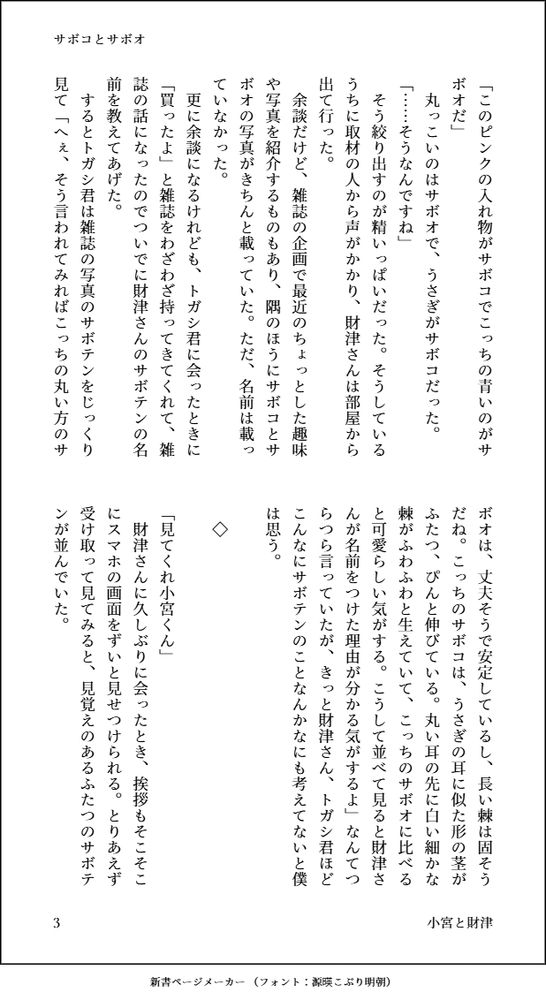 サボコとサボオ
「このピンクの入れ物がサボコでこっちの青いのがサ
ボオだ」
　丸っこいのはサボオで、うさぎがサボコだった。
「……そうなんですね」
　そう絞り出すのが精いっぱいだった。そうしている
うちに取材の人から声がかかり、財津さんは部屋から
出て行った。
　余談だけど、雑誌の企画で最近のちょっとした趣味
や写真を紹介するものもあり、隅のほうにサボコとサ
ボオの写真がきちんと載っていた。ただ、名前は載っ
ていなかった。
　更に余談になるけれども、トガシ君に会ったときに
「買ったよ」と雑誌をわざわざ持ってきてくれて、雑
誌の話になったのでついでに財津さんのサボテンの名
前を教えてあげた。
　するとトガシ君は雑誌の写真のサボテンをじっくり
見て「へぇ、そう言われてみればこっちの丸い方のサ
ボオは、丈夫そうで安定しているし、長い棘は固そう
だね。こっちのサボコは、うさぎの耳に似た形の茎が
ふたつ、ぴんと伸びている。丸い耳の先に白い細かな
棘がふわふわと生えていて、こっちのサボオに比べる
と可愛らしい気がする。こうして並べて見ると財津さ
んが名前をつけた理由が分かる気がするよ」なんてつ
らつら言っていたが、きっと財津さん、トガシ君ほど
こんなにサボテンのことなんかなにも考えてないと僕
は思う。
◇
「見てくれ小宮くん」
　財津さんに久しぶりに会ったとき、挨拶もそこそこ
にスマホの画面をずいと見せつけられる。とりあえず
受け取って見てみると、見覚えのあるふたつのサボテ
ンが並んでいた。
3
小宮と財津
新書ページメーカー（フォント：源暎こぶり明朝）